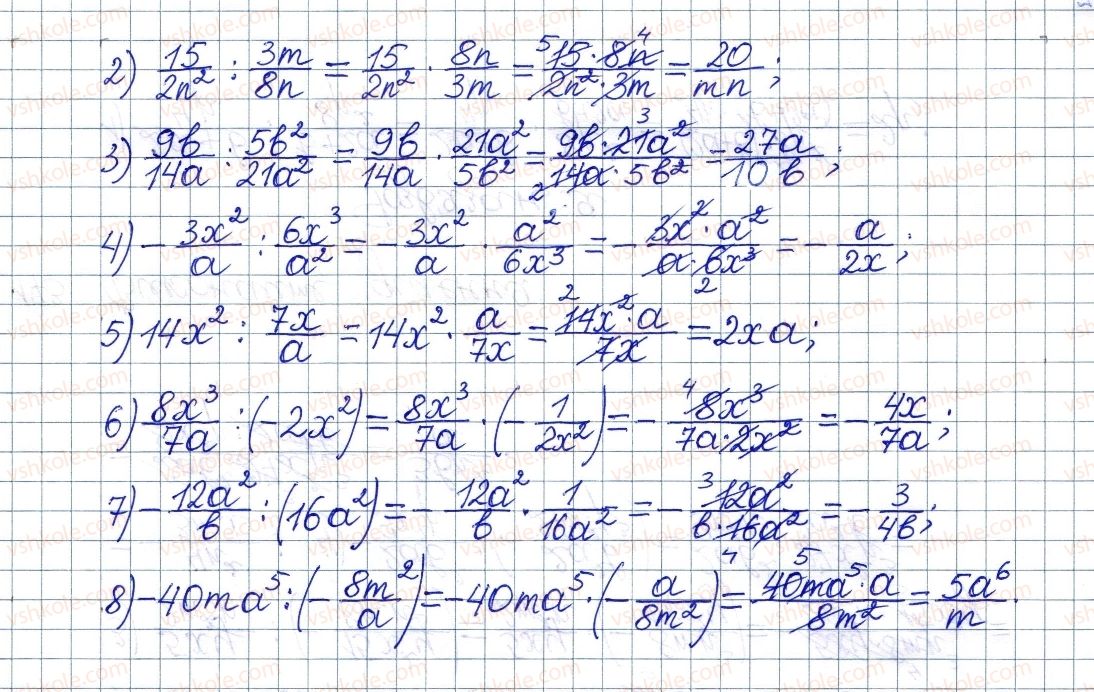 2) 15/2n² : 3m/8n = 15/2n² · 8n/3m = 15·8n/2n²·3m = 20/mn;
3) 9b/14a : 5b²/21a² = 9b/14a · 21a²/5b² = 9b·21a²/14a·5b² = 27a/10b;
4) -3x²/a : 6x³/a² = -3x²/a · a²/6x³ = -3x²·a²/a·6x³ = -a/2x;
5) 14x² : 7x/a = 14x² · a/7x = 14x²·a/7x = 2xa;
6) 8x³/7a : (-2x²) = 8x³/7a · (-1/2x²) = -8x³/7a·2x² = -4x/7a;
7) -12a²/b : (16a²) = -12a²/b · 1/16a² = -12a²/b·16a² = -3/4b;
8) -40ma⁵ : (-8m²/a) = -40ma⁵ · (-a/8m²) = 40ma⁵·a/8m² = 5a⁶/m.
vshkole.com